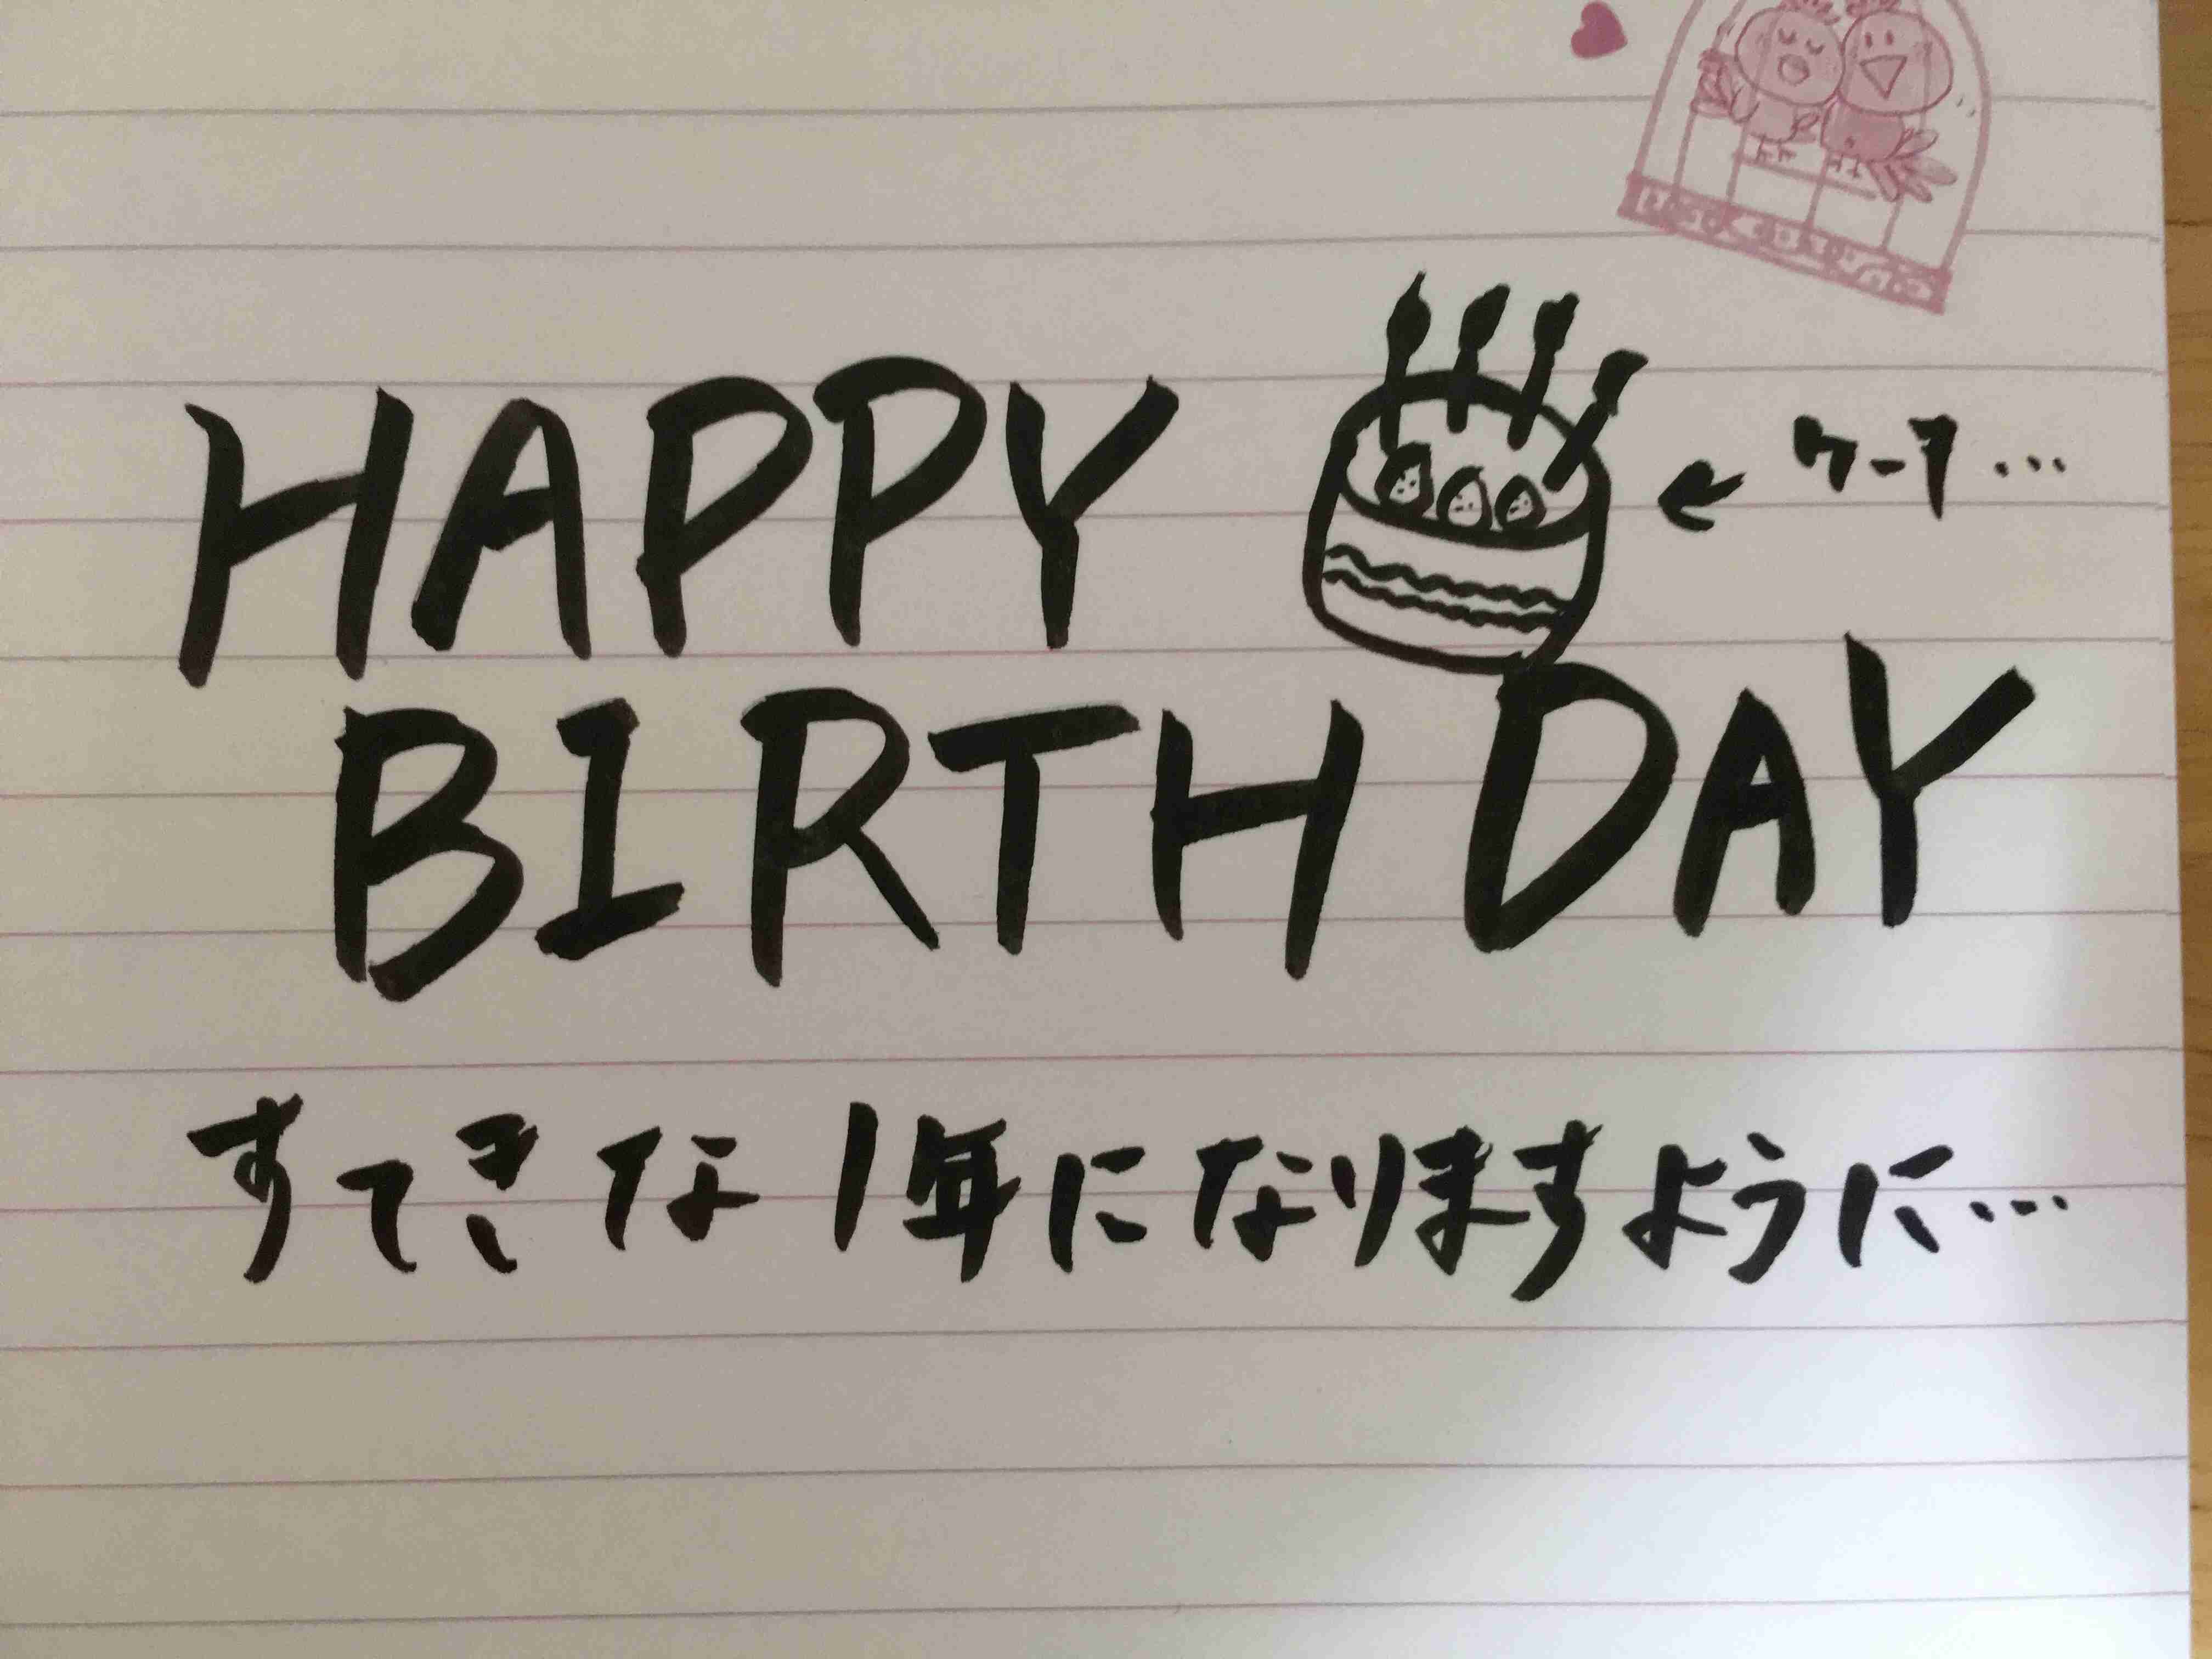 HAPPY
←ケーキ…
BIRTHDAY
すてきな1年になりますように…